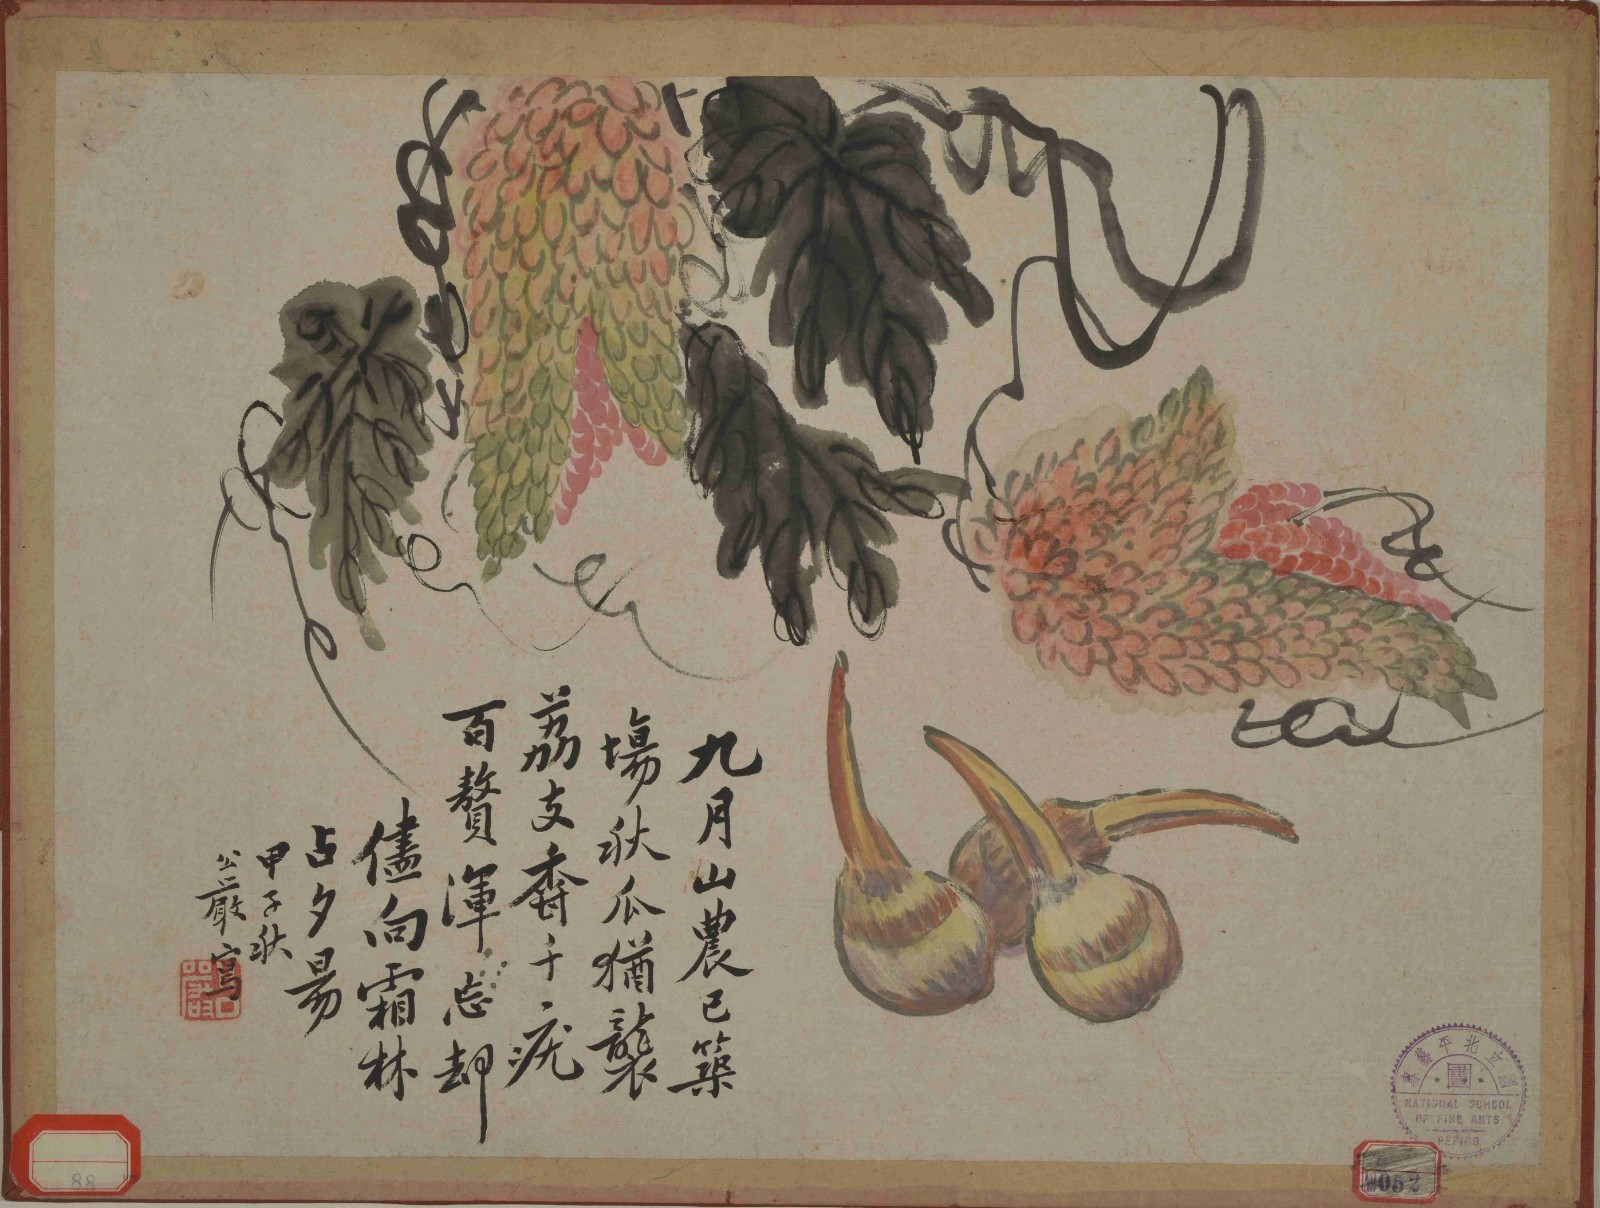 九月山農已築
場秋瓜猶襲
荔支香千疣
百贅渾忘却
儘向霜林
占夕昜
甲子秋
公嚴寫
國立北平藝專
圖
NATIONAL SCHOOL
OF FINE ARTS
PEPING
88
052